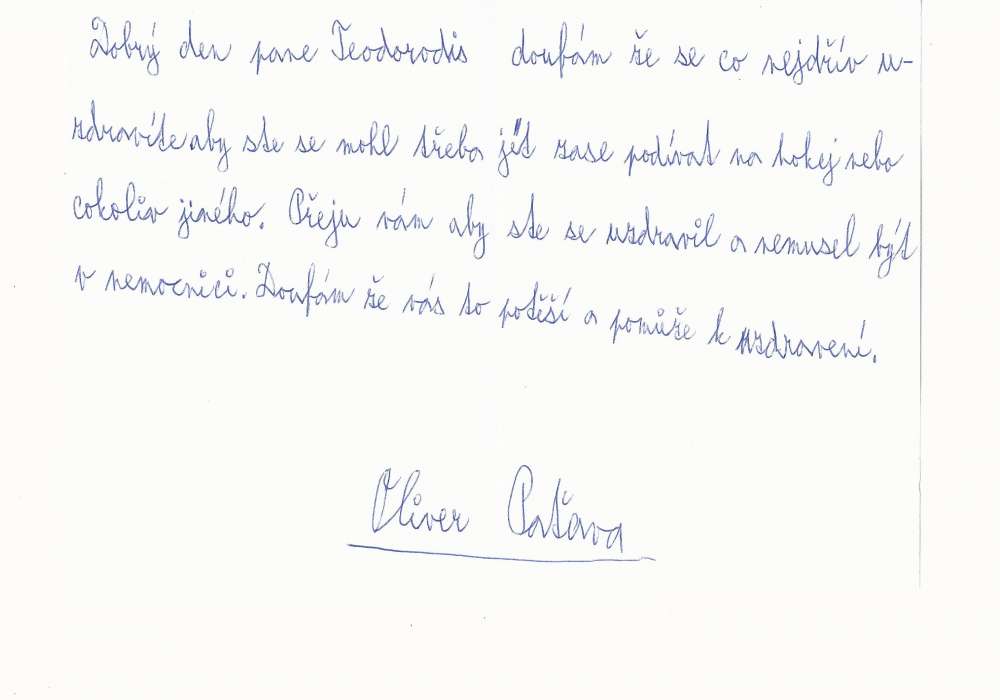 Dobrý den pane Teodorodis doufám že se co nejdřív u-
zdravíte aby ste se mohl třeba jet zase podívat na hokej nebo
cokoliv jiného. Přeju vám aby ste se uzdravil a nemusel být
v nemocnici. Doufám že vás to potěší a pomůže k uzdravení.
Oliver Paťava